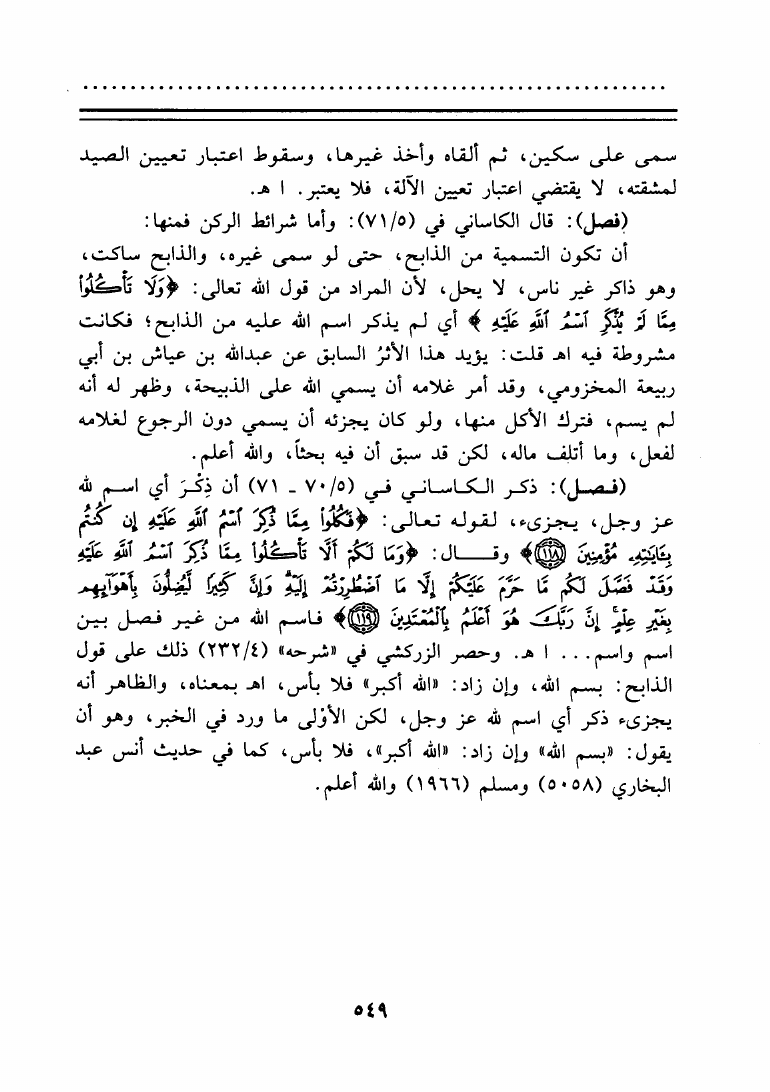 سمى على سكين، ثم ألقاه وأخذ غيرها، وسقوط اعتبار تعيين الصيد
لمشقته، لا يقتضي اعتبار تعيين الآلة، فلا يعتبر. ا هـ.
(فصل): قال الكاساني في (٧١/٥): وأما شرائط الركن فمنها:
أن تكون التسمية من الذابح، حتى لو سمى غيره، والذابح ساكت،
وهو ذاكر غير ناس، لا يحل، لأن المراد من قول الله تعالى: ﴿وَلَا تَأْكُلُوا۟
مِمَّا لَمْ يُذْكَرِ ٱسْمُ ٱللَّهِ عَلَيْهِ﴾ أي لم يذكر اسم الله عليه من الذابح؛ فكانت
مشروطة فيه اهـ قلت: يؤيد هذا الأثرُ السابق عن عبدالله بن عياش بن أبي
ربيعة المخزومي، وقد أمر غلامه أن يسمي الله على الذبيحة، وظهر له أنه
لم يسم، فترك الأكل منها، ولو كان يجزئه أن يسمي دون الرجوع لغلامه
لفعل، وما أتلف ماله، لكن قد سبق أن فيه بحثاً، والله أعلم.
(فصل): ذكر الكاساني في (٧٠/٥ - ٧١) أن ذِكْرَ أي اسم لله
عز وجل، يجزىء، لقوله تعالى: ﴿فَكُلُوا۟ مِمَّا ذُكِرَ ٱسْمُ ٱللَّهِ عَلَيْهِ إِن كُنتُم
بِـَٔايَـٰتِهِۦ مُؤْمِنِينَ ﴿١١٨﴾﴾ وقال: ﴿وَمَا لَكُمْ أَلَّا تَأْكُلُوا۟ مِمَّا ذُكِرَ ٱسْمُ ٱللَّهِ عَلَيْهِ
وَقَدْ فَصَّلَ لَكُم مَّا حَرَّمَ عَلَيْكُمْ إِلَّا مَا ٱضْطُرِرْتُمْ إِلَيْهِ ۗ وَإِنَّ كَثِيرًا لَّيُضِلُّونَ بِأَهْوَآئِهِم
بِغَيْرِ عِلْمٍ ۗ إِنَّ رَبَّكَ هُوَ أَعْلَمُ بِٱلْمُعْتَدِينَ ﴿١١٩﴾﴾ فاسم الله من غير فصل بين
اسم واسم... ا هـ. وحصر الزركشي في «شرحه» (٢٣٢/٤) ذلك على قول
الذابح: بسم الله، وإن زاد: «الله أكبر» فلا بأس، اهـ بمعناه، والظاهر أنه
يجزىء ذكر أي اسم لله عز وجل، لكن الأوْلى ما ورد في الخبر، وهو أن
يقول: «بسم الله» وإن زاد: «الله أكبر»، فلا بأس، كما في حديث أنس عبد
البخاري (٥٠٥٨) ومسلم (١٩٦٦) والله أعلم.
٥٤٩